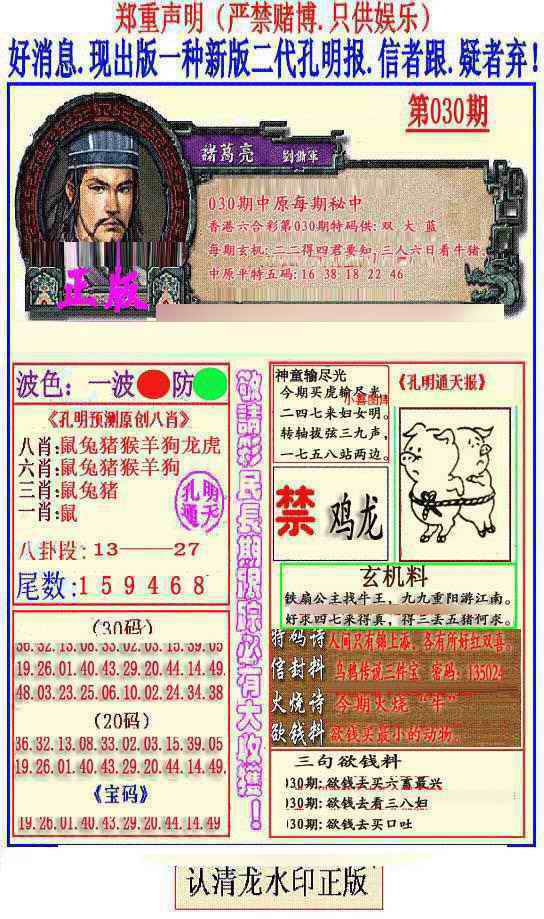 郑重声明（严禁赌博.只供娱乐）
好消息.现出版一种新版二代孔明报.信者跟.疑者弃!
第030期
諸葛亮 劉謝軍
030期中原每期秘中
香港六合彩第030期特码供: 双 大 蓝
每期玄机: 二二得四君要知, 三人六日看牛猪.
中原平特五码: 16 38 18 22 46
正版
波色: 一波 防
《孔明预测原创八肖》
八肖:鼠兔猪猴羊狗龙虎
六肖:鼠兔猪猴羊狗
三肖:鼠兔猪
一肖:鼠
孔明
通天
八卦段: 13——27
尾数: 159468
(30码)
36.32.13.08.33.02.03.15.39.05
19.26.01.40.43.29.20.44.14.49
48.03.23.25.06.10.02.24.34.38
(20码)
36.32.13.08.33.02.03.15.39.05
19.26.01.40.43.29.20.44.14.49
《宝码》
19.26.01.40.43.29.20.44.14.49
敬請彩民長期跟踪必有大收獲!
神童输尽光
今期买虎输尽光
二四七来妇女明。
转轴拔弦三九声,
一七五八站两边。
《孔明通天报》
禁 鸡龙
玄机料
铁扇公主找牛王, 九九重阳游江南。
好求四七来得真, 得二去五猪何求。
特码诗 人间只有锦上添, 各有所好红双喜.
信封料 乌鹊传说三件宝 密码: 135024
火烧诗 今期火烧“牛”
欲钱料 欲钱买最小的动物.
三句欲钱料
030期: 欲钱去买六畜最兴
030期: 欲钱去看三八妇
030期: 欲钱去买口吐
认清龙水印正版